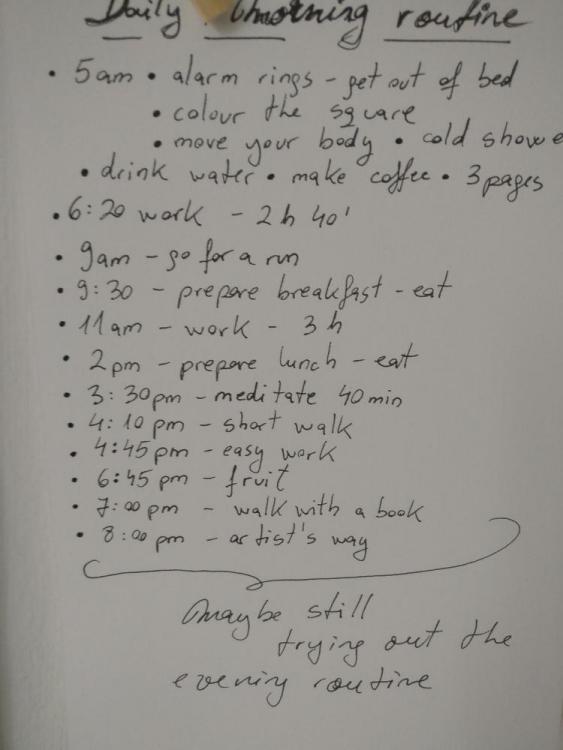 Daily morning routine
• 5am • alarm rings - get out of bed
• colour the square
• move your body • cold showe
• drink water • make coffee • 3 pages
• 6:20 work - 2h 40'
• 9am - go for a run
• 9:30 - prepare breakfast - eat
• 11am - work - 3h
• 2pm - prepare lunch - eat
• 3:30pm - meditate 40min
• 4:10 pm - short walk
• 4:45 pm - easy work
• 6:45 pm - fruit
• 7:00 pm - walk with a book
• 8:00 pm - artist's way
maybe still
trying out the
evening routine